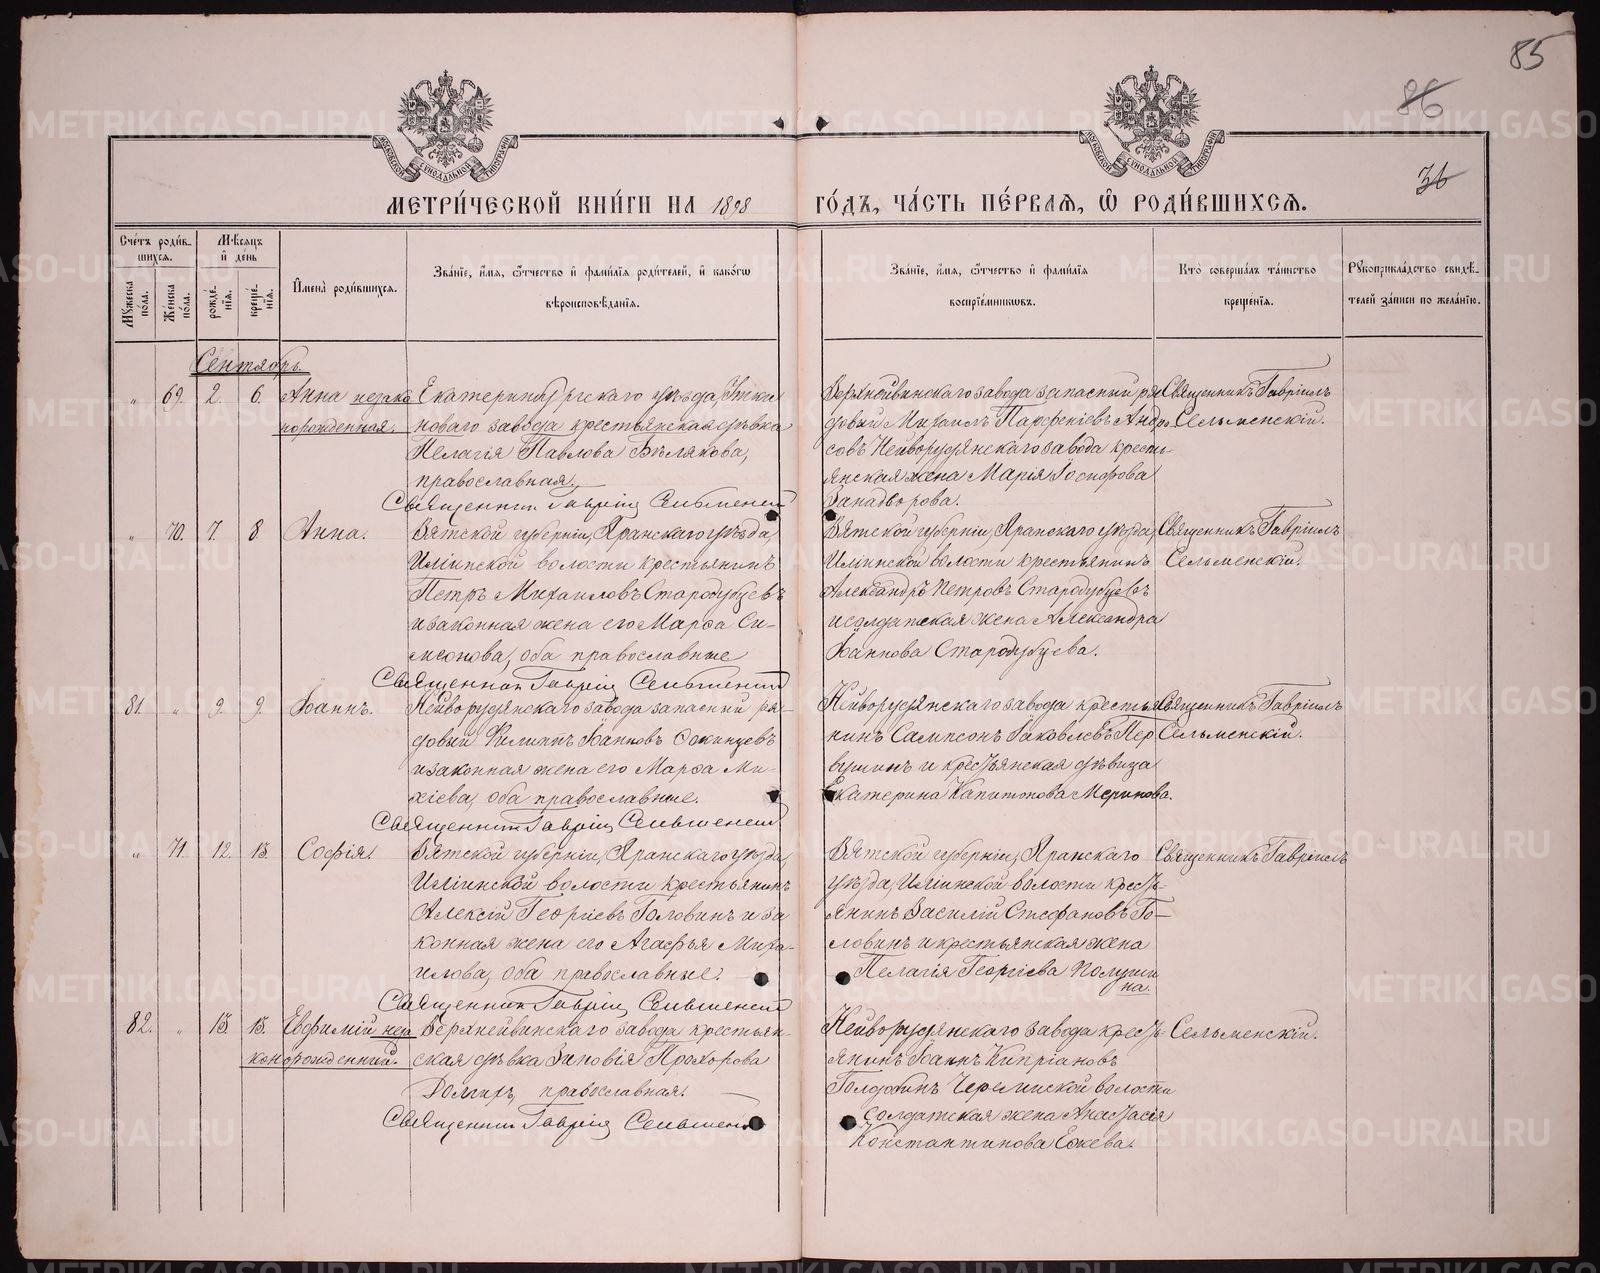 85
86
36
МОСКОВСКОЙ СѴНОДАЛЬНОЙ ТИПОГРАФІИ
МОСКОВСКОЙ СѴНОДАЛЬНОЙ ТИПОГРАФІИ
МЕТРИ́ЧЕСКОЙ КНИ́ГИ НА 1898 ГО́ДЪ, ЧА́СТЬ ПЕ́РВАѦ, Ѽ РОДИ́ВШИХСѦ.
Сче́тъ роди́в-
шихсѧ.
Мꙋжеска пола.
Же́нска пола.
М-ѣсѧцъ
и҆ де́нь
рожде́-
нїѧ.
креще́-
нїѧ.
И҆мена̀ роди́вшихсѧ.
Зва́нїе, и҆́мѧ, ѻ҆́тчество и҆ фами́лїѧ роди́телей, и҆ како́гѡ
вѣроисповѣ́данїѧ.
Зва́нїе, и҆́мѧ, ѻ҆́тчество и҆ фами́лїѧ
воспрїе́мникѡвъ.
Кто̀ соверша́лъ та́инство
креще́нїѧ.
Рꙋкоприкла́дство свидѣ́-
телей за́писи по жела́нїю.
Сентябрь.
„ 69. 2. 6. Анна незако
норожденная.
Екатеринбургскаго уѣзда,
новаго завода крестьянская дѣвка
Пелагія Павлова Бѣлякова,
православная.
Священник Гавріил Сельменский
Верхнейвинскаго завода запасный ря
довый Михаилъ Парфеніевъ Андр
совъ Нейворудянскаго завода кресть-
янская жена Марія Іосифова
Западворова.
Священникъ Гавріилъ
Сельменскій.
„ 70. 7. 8 Анна.
Вятской губерніи, Яранскаго уѣзда,
Илгинской волости крестьянинъ
Петръ Михаиловъ Стародубцевъ
и законная жена его Марѳа Си-
меонова, оба православные
Священник Гавріил Сельменский
Вятской губерніи, Яранскаго уѣзда,
Илгинской волости крестьянинъ
Александръ Петровъ Стародубцевъ
и солдатская жена Александра
Іоаннова Стародубцева.
Священникъ Гавріилъ
Сельменскій.
81. „ 9. 9. Іоаннъ.
Нейворудянскаго завода запасный ря-
довый Филиппъ Іоанновъ
и законная жена его Марѳа Ми-
хіева, оба православные.
Священник Гавріил Сельменский
Нейворудянскаго завода крестья
нинъ Сампсонъ Іаковлевъ Пер
вушинъ и крестьянская дѣвица
Екатерина Капитонова Меринова.
Священникъ Гавріилъ
Сельменскій.
„ 71. 12. 13. Софія.
Вятской губерніи, Яранскаго уѣзда,
Илгинской волости крестьянинъ
Алексій Георгіевъ Головинъ и за
конная жена его Агафья Миха-
илова, оба православные.
Священник Гавріил Сельменский
Вятской губерніи, Яранскаго
уѣзда, Илгинской волости кресть-
янинъ Василій Стефановъ Го-
ловинъ и крестьянская жена
Пелагія Георгіева Полуши
на.
Священникъ Гавріилъ
82. „ 13 13. Евфимій неза
конорожденный.
Верхнейвинскаго завода крестьян-
ская дѣвка Зиновія Прохорова
Долгихъ, православная.
Священник Гавріил Сельмен
Нейворудянскаго завода кресть-
янинъ Іоаннъ Кипріановъ
Голдобинъ Черемиской волости
солдатская жена Анастасія
Константинова Ежева.
Сельменскій.
METRIKI.GASO-URAL.RU